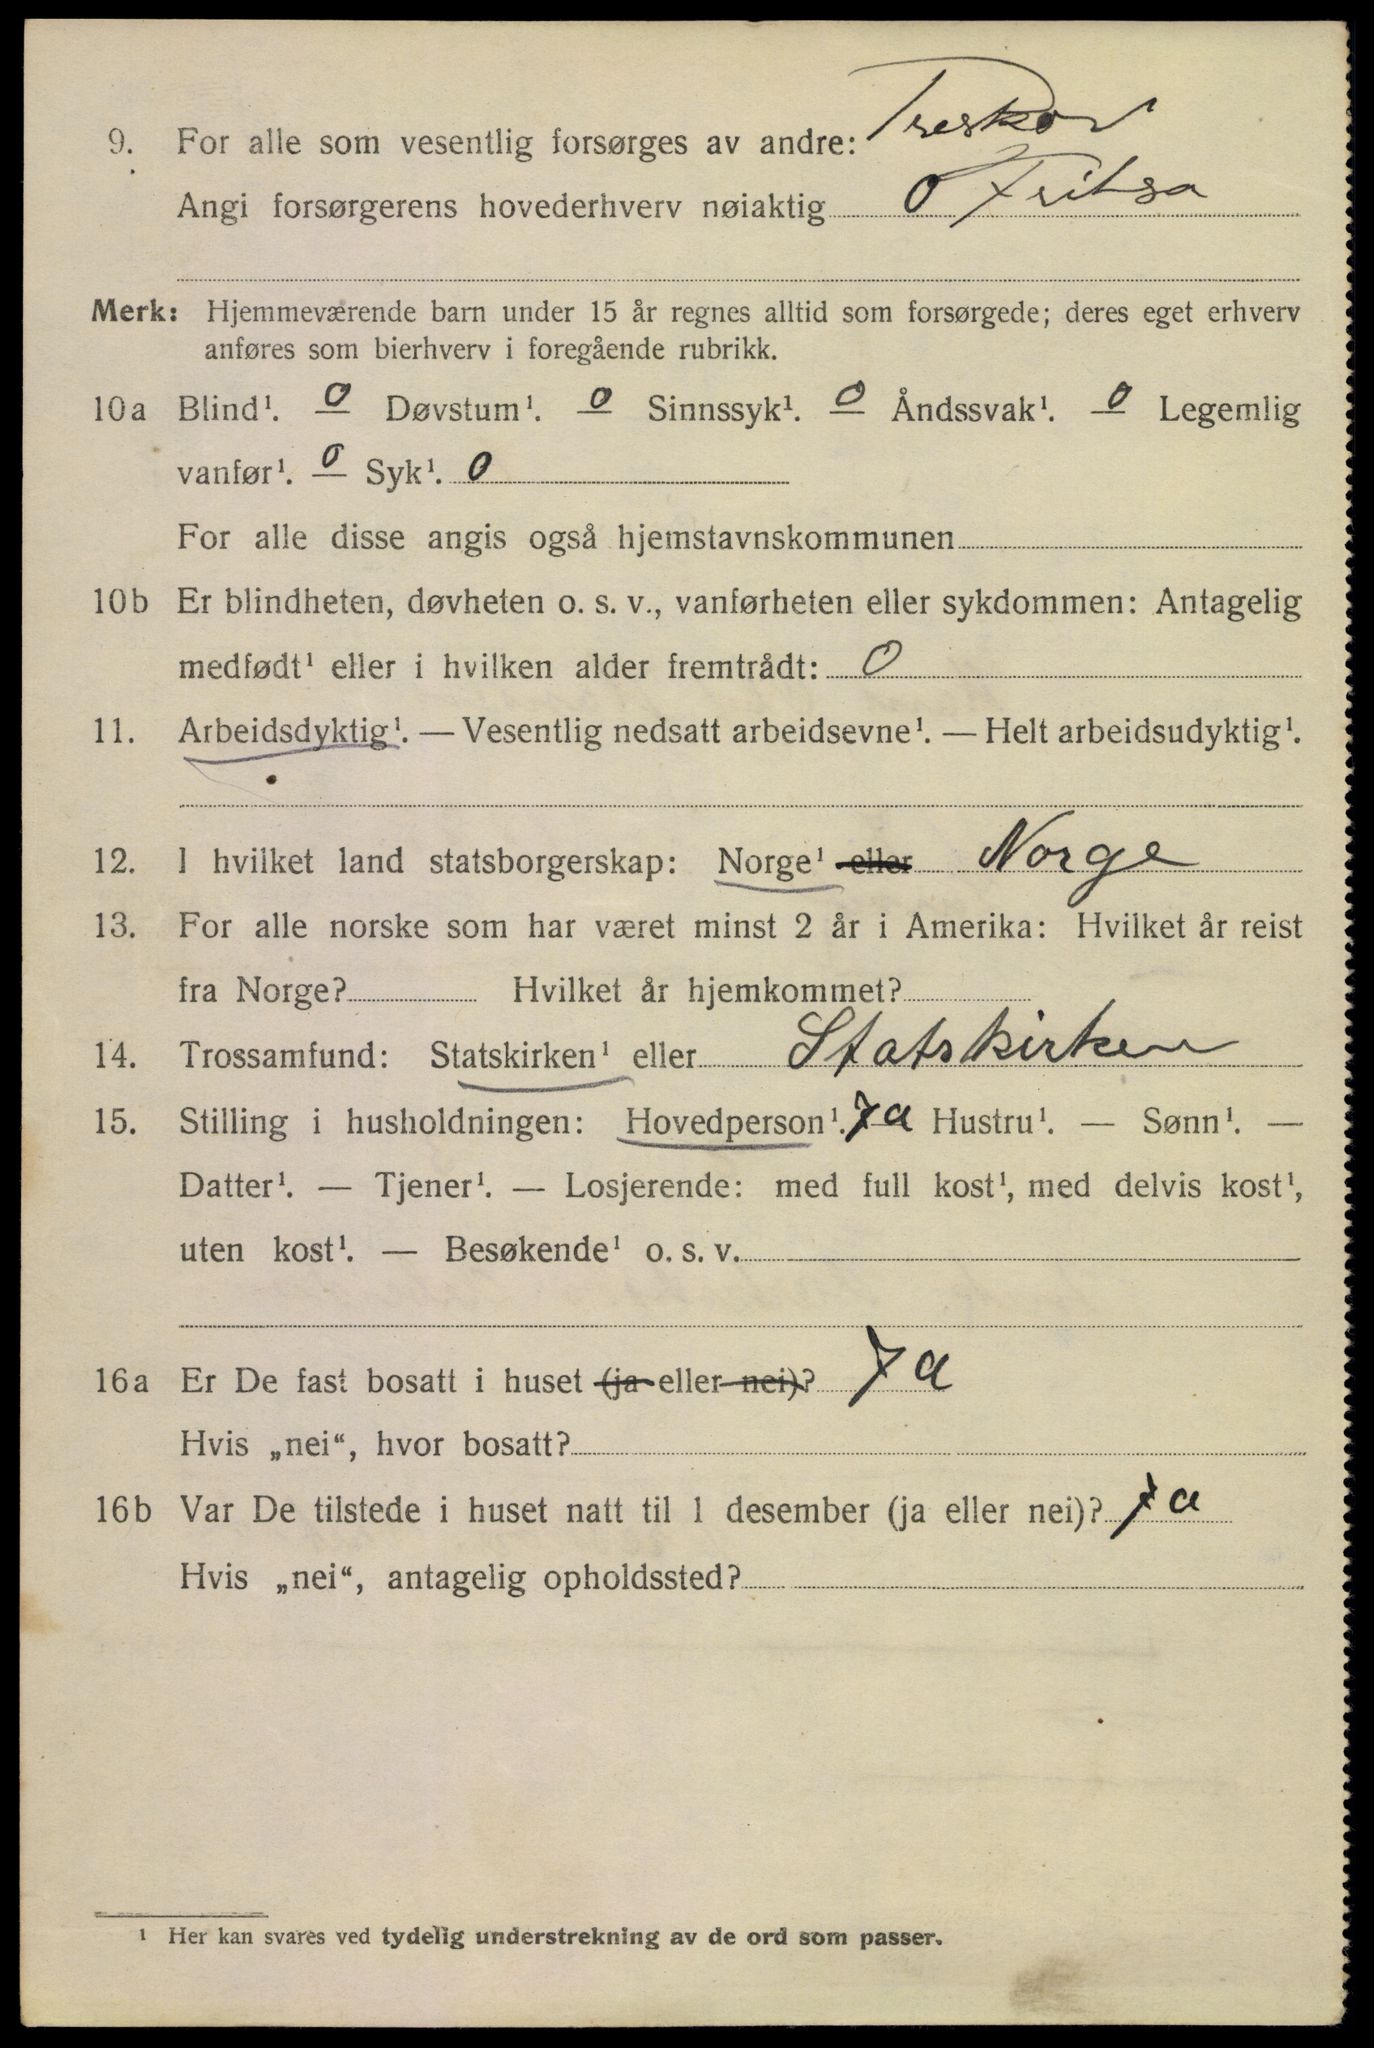 Treskov
9. For alle som vesentlig forsørges av andre:
Angi forsørgerens hovederhverv nøiaktig O Fritsø
Merk: Hjemmeværende barn under 15 år regnes alltid som forsørgede; deres eget erhverv
anføres som bierhverv i foregående rubrikk.
10a Blind¹. O Døvstum¹. O Sinnssyk¹. O Åndssvak¹. O Legemlig
vanfør¹. O Syk¹. O
For alle disse angis også hjemstavnskommunen
10b Er blindheten, døvheten o. s. v., vanførheten eller sykdommen: Antagelig
medfødt¹ eller i hvilken alder fremtrådt: O
11. Arbeidsdyktig¹. — Vesentlig nedsatt arbeidsevne¹. — Helt arbeidsudyktig¹.
12. I hvilket land statsborgerskap: Norge¹ eller Norge
13. For alle norske som har været minst 2 år i Amerika: Hvilket år reist
fra Norge? Hvilket år hjemkommet?
14. Trossamfund: Statskirken¹ eller Statskirken
15. Stilling i husholdningen: Hovedperson¹. Ja Hustru¹. — Sønn¹. —
Datter¹. — Tjener¹. — Losjerende: med full kost¹, med delvis kost¹,
uten kost¹. — Besøkende¹ o. s. v.
16a Er De fast bosatt i huset (ja eller nei)? Ja
Hvis „nei“, hvor bosatt?
16b Var De tilstede i huset natt til 1 desember (ja eller nei)? Ja
Hvis „nei“, antagelig opholdssted?
¹ Her kan svares ved tydelig understrekning av de ord som passer.